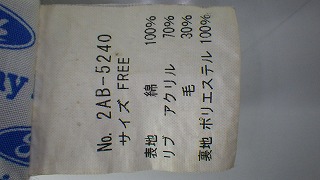 No. 2AB-5240
サイズ FREE
表地 綿 100%
リブ アクリル 70%
毛 30%
裏地 ポリエステル 100%